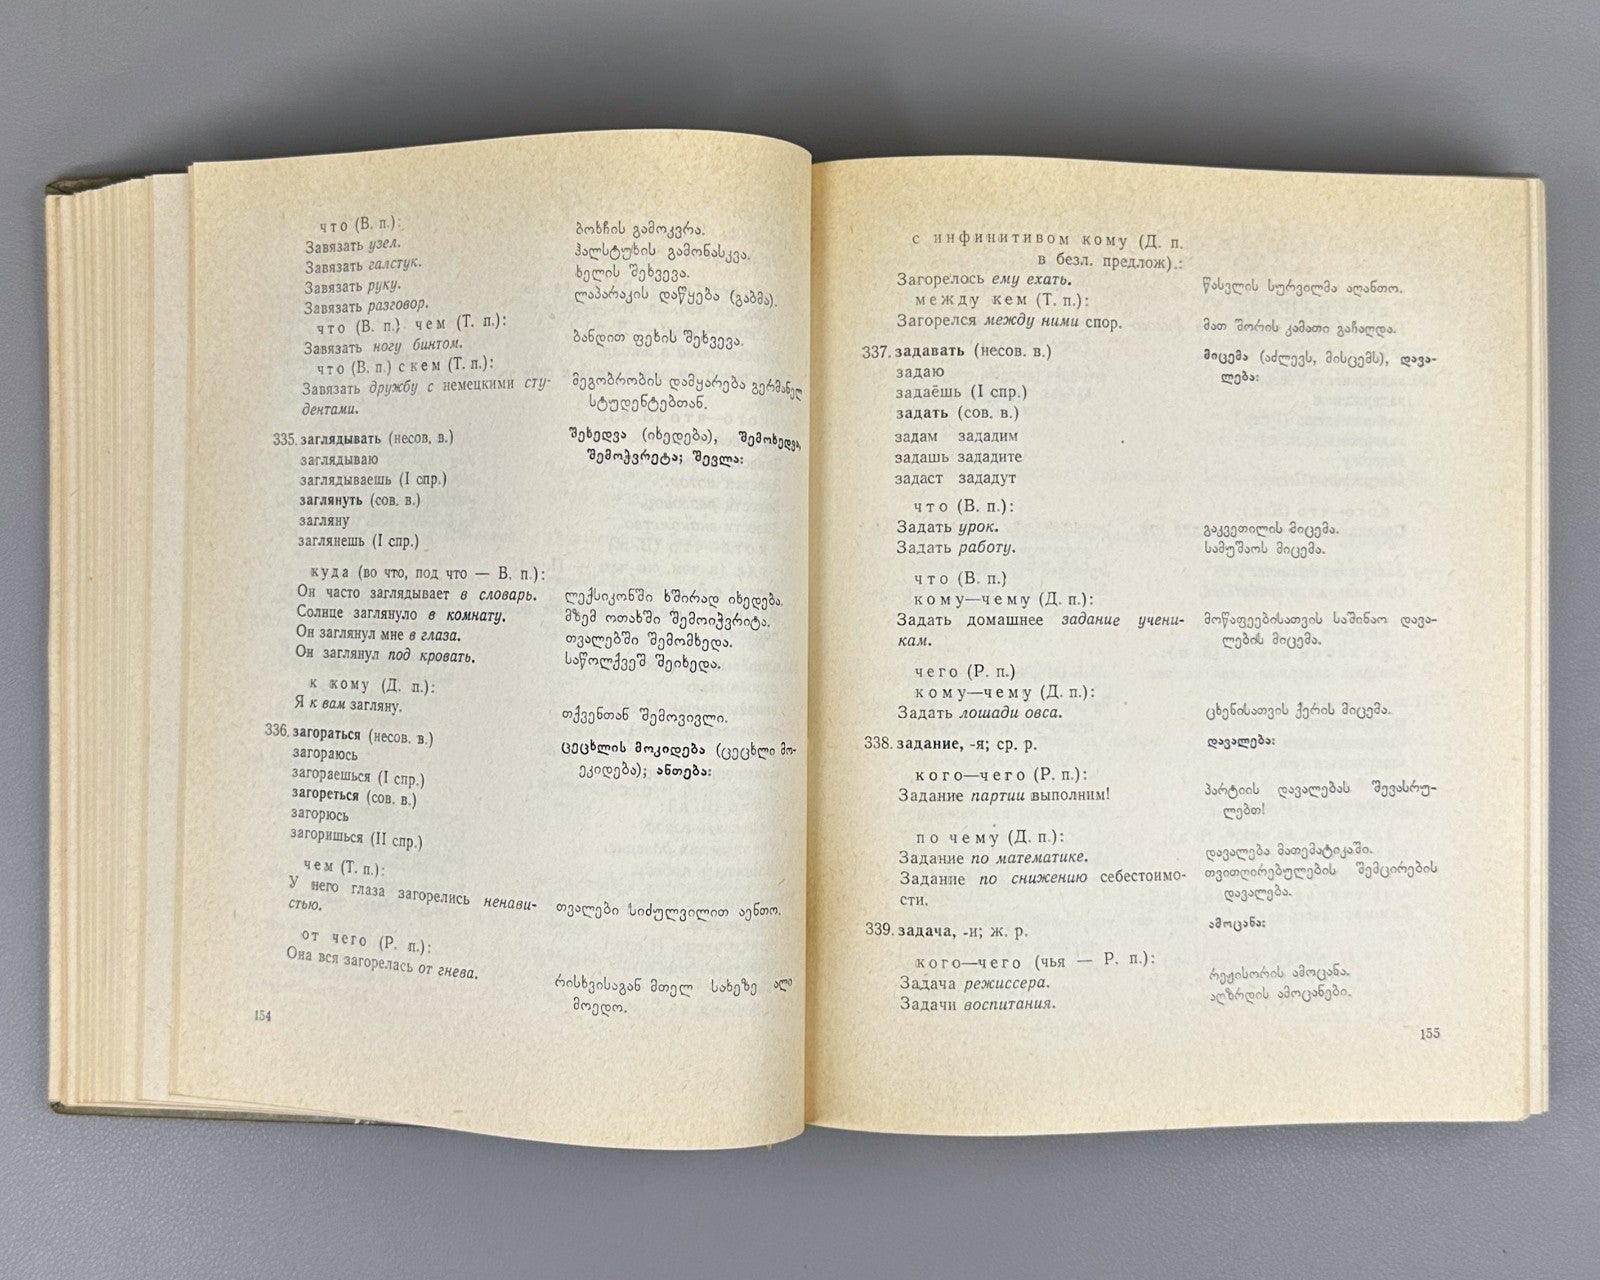 что (В. п.):
Завязать узел.
ბოხჩის გამოკვრა.
Завязать галстук.
ჰალსტუხის გამონასკვა.
Завязать руку.
ხელის შეხვევა.
Завязать разговор.
ლაპარაკის დაწყება (გაბმა).
что (В. п.) чем (Т. п.):
Завязать ногу бинтом.
ბანდით ფეხის შეხვევა.
что (В. п.) с кем (Т. п.):
Завязать дружбу с немецкими сту-
дентами.
მეგობრობის დამყარება გერმანელ
სტუდენტებთან.
335. заглядывать (несов. в.)
შეხედვა (იხედება), შემოხედვა,
заглядываю
შემოჭვრეტა; შევლა:
заглядываешь (I спр.)
заглянуть (сов. в.)
загляну
заглянешь (I спр.)
куда (во что, под что — В. п.):
Он часто заглядывает в словарь.
ლექსიკონში ხშირად იხედება.
Солнце заглянуло в комнату.
მზემ ოთახში შემოიჭვრიტა.
Он заглянул мне в глаза.
თვალებში შემომხედა.
Он заглянул под кровать.
საწოლქვეშ შეიხედა.
к кому (Д. п.):
Я к вам загляну.
თქვენთან შემოვივლი.
336. загораться (несов. в.)
ცეცხლის მოკიდება (ცეცხლი მო-
загораюсь
ეკიდება); ანთება:
загораешься (I спр.)
загореться (сов. в.)
загорюсь
загоришься (II спр.)
чем (Т. п.):
У него глаза загорелись ненави-
стью.
თვალები სიძულვილით აენთო.
от чего (Р. п.):
Она вся загорелась от гнева.
რისხვისაგან მთელ სახეზე ალი
მოედო.
154
с инфинитивом кому (Д. п.
в безл. предлож).:
Загорелось ему ехать.
წასვლის სურვილმა აღანთო.
между кем (Т. п.):
Загорелся между ними спор.
მათ შორის კამათი გაჩაღდა.
337. задавать (несов. в.)
მიცემა (აძლევს, მისცემს), დავა-
задаю
ლება:
задаёшь (I спр.)
задать (сов. в.)
задам зададим
задашь зададите
задаст зададут
что (В. п.):
Задать урок.
გაკვეთილის მიცემა.
Задать работу.
სამუშაოს მიცემა.
что (В. п.)
кому—чему (Д. п.):
Задать домашнее задание учени-
кам.
მოწაფეებისათვის საშინაო დავა-
ლების მიცემა.
чего (Р. п.)
кому—чему (Д. п.):
Задать лошади овса.
ცხენისათვის ქერის მიცემა.
338. задание, -я; ср. р.
დავალება:
кого—чего (Р. п.):
Задание партии выполним!
პარტიის დავალებას შევასრუ-
ლებთ!
по чему (Д. п.):
Задание по математике.
დავალება მათემატიკაში.
Задание по снижению себестоимо-
сти.
თვითღირებულების შემცირების
დავალება.
339. задача, -и; ж. р.
ამოცანა:
кого—чего (чья — Р. п.):
Задача режиссера.
რეჟისორის ამოცანა.
Задачи воспитания.
აღზრდის ამოცანები.
155